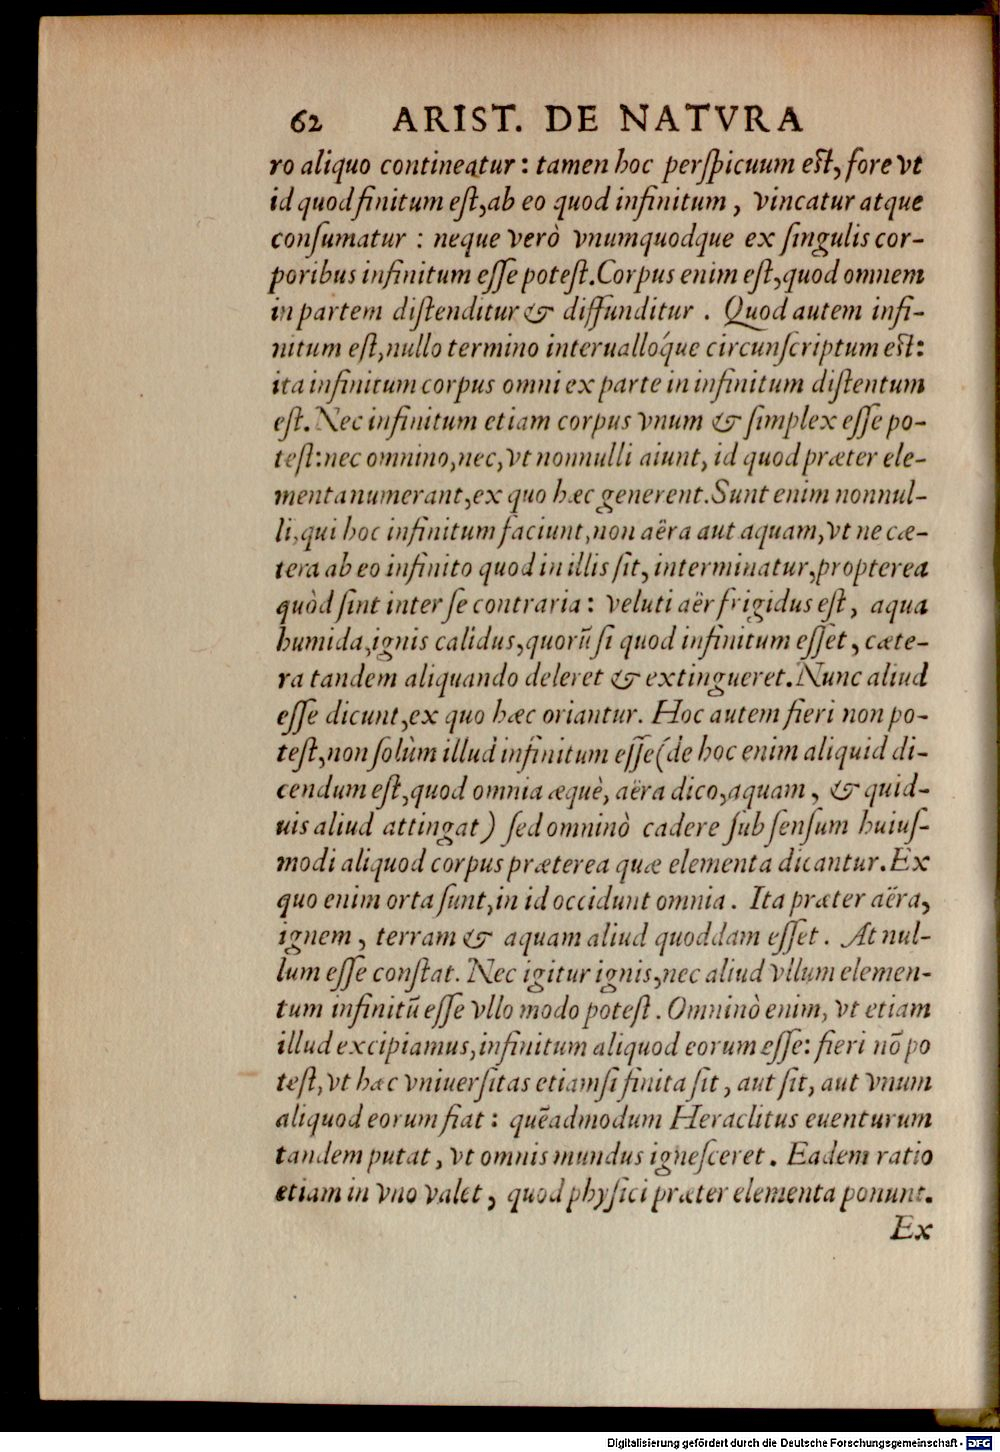 62 ARIST. DE NATVRA
ro aliquo contineatur: tamen hoc perſpicuum eſt, fore vt
id quod finitum eſt, ab eo quod infinitum, vincatur atque
conſumatur: neque verò vnumquodque ex ſingulis cor-
poribus infinitum eſſe poteſt. Corpus enim eſt, quod omnem
in partem diſtenditur & diffunditur. Quod autem infi-
nitum eſt, nullo termino interualloq́ue circunſcriptum eſt:
ita infinitum corpus omni ex parte in infinitum diſtentum
eſt. Nec infinitum etiam corpus vnum & ſimplex eſſe po-
teſt: nec omnino, nec, vt nonnulli aiunt, id quod præter ele-
menta numerant, ex quo hæc generent. Sunt enim nonnul-
li, qui hoc infinitum faciunt, non aëra aut aquam, vt ne cæ-
tera ab eo infinito quod in illis ſit, interminatur, propterea
quòd ſint inter ſe contraria: veluti aër frigidus eſt, aqua
humida, ignis calidus, quorũ ſi quod infinitum eſſet, cæte-
ra tandem aliquando deleret & extingueret. Nunc aliud
eſſe dicunt, ex quo hæc oriantur. Hoc autem fieri non po-
teſt, non ſolùm illud infinitum eſſe (de hoc enim aliquid di-
cendum eſt, quod omnia æquè, aëra dico, aquam, & quid-
uis aliud attingat) ſed omninò cadere ſub ſenſum huiuſ-
modi aliquod corpus præterea quæ elementa dicantur. Ex
quo enim orta ſunt, in id occidunt omnia. Ita præter aëra,
ignem, terram & aquam aliud quoddam eſſet. At nul-
lum eſſe conſtat. Nec igitur ignis, nec aliud vllum elemen-
tum infinitũ eſſe vllo modo poteſt. Omninò enim, vt etiam
illud excipiamus, infinitum aliquod eorum eſſe: fieri nõ po
teſt, vt hæc vniuerſitas etiamſi finita ſit, aut ſit, aut vnum
aliquod eorum fiat: quẽadmodum Heraclitus euenturum
tandem putat, vt omnis mundus igneſceret. Eadem ratio
etiam in vno valet, quod phyſici præter elementa ponunt.
Ex
Digitalisierung gefördert durch die Deutsche Forschungsgemeinschaft - DFG